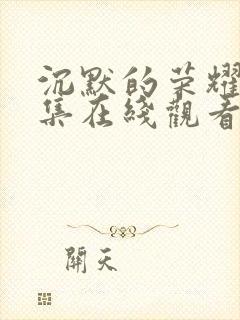 沉默的荣耀
集在綫觀看
開天